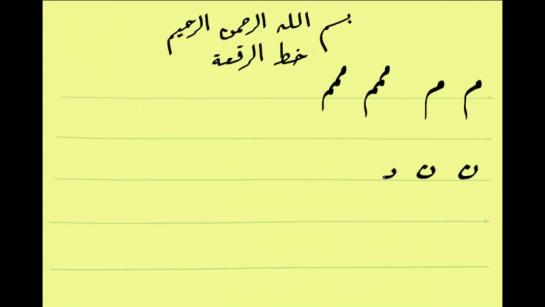 بسم الله الرحمن الرحيم
خط الرقعة
م م ممم ممم
ن ن د